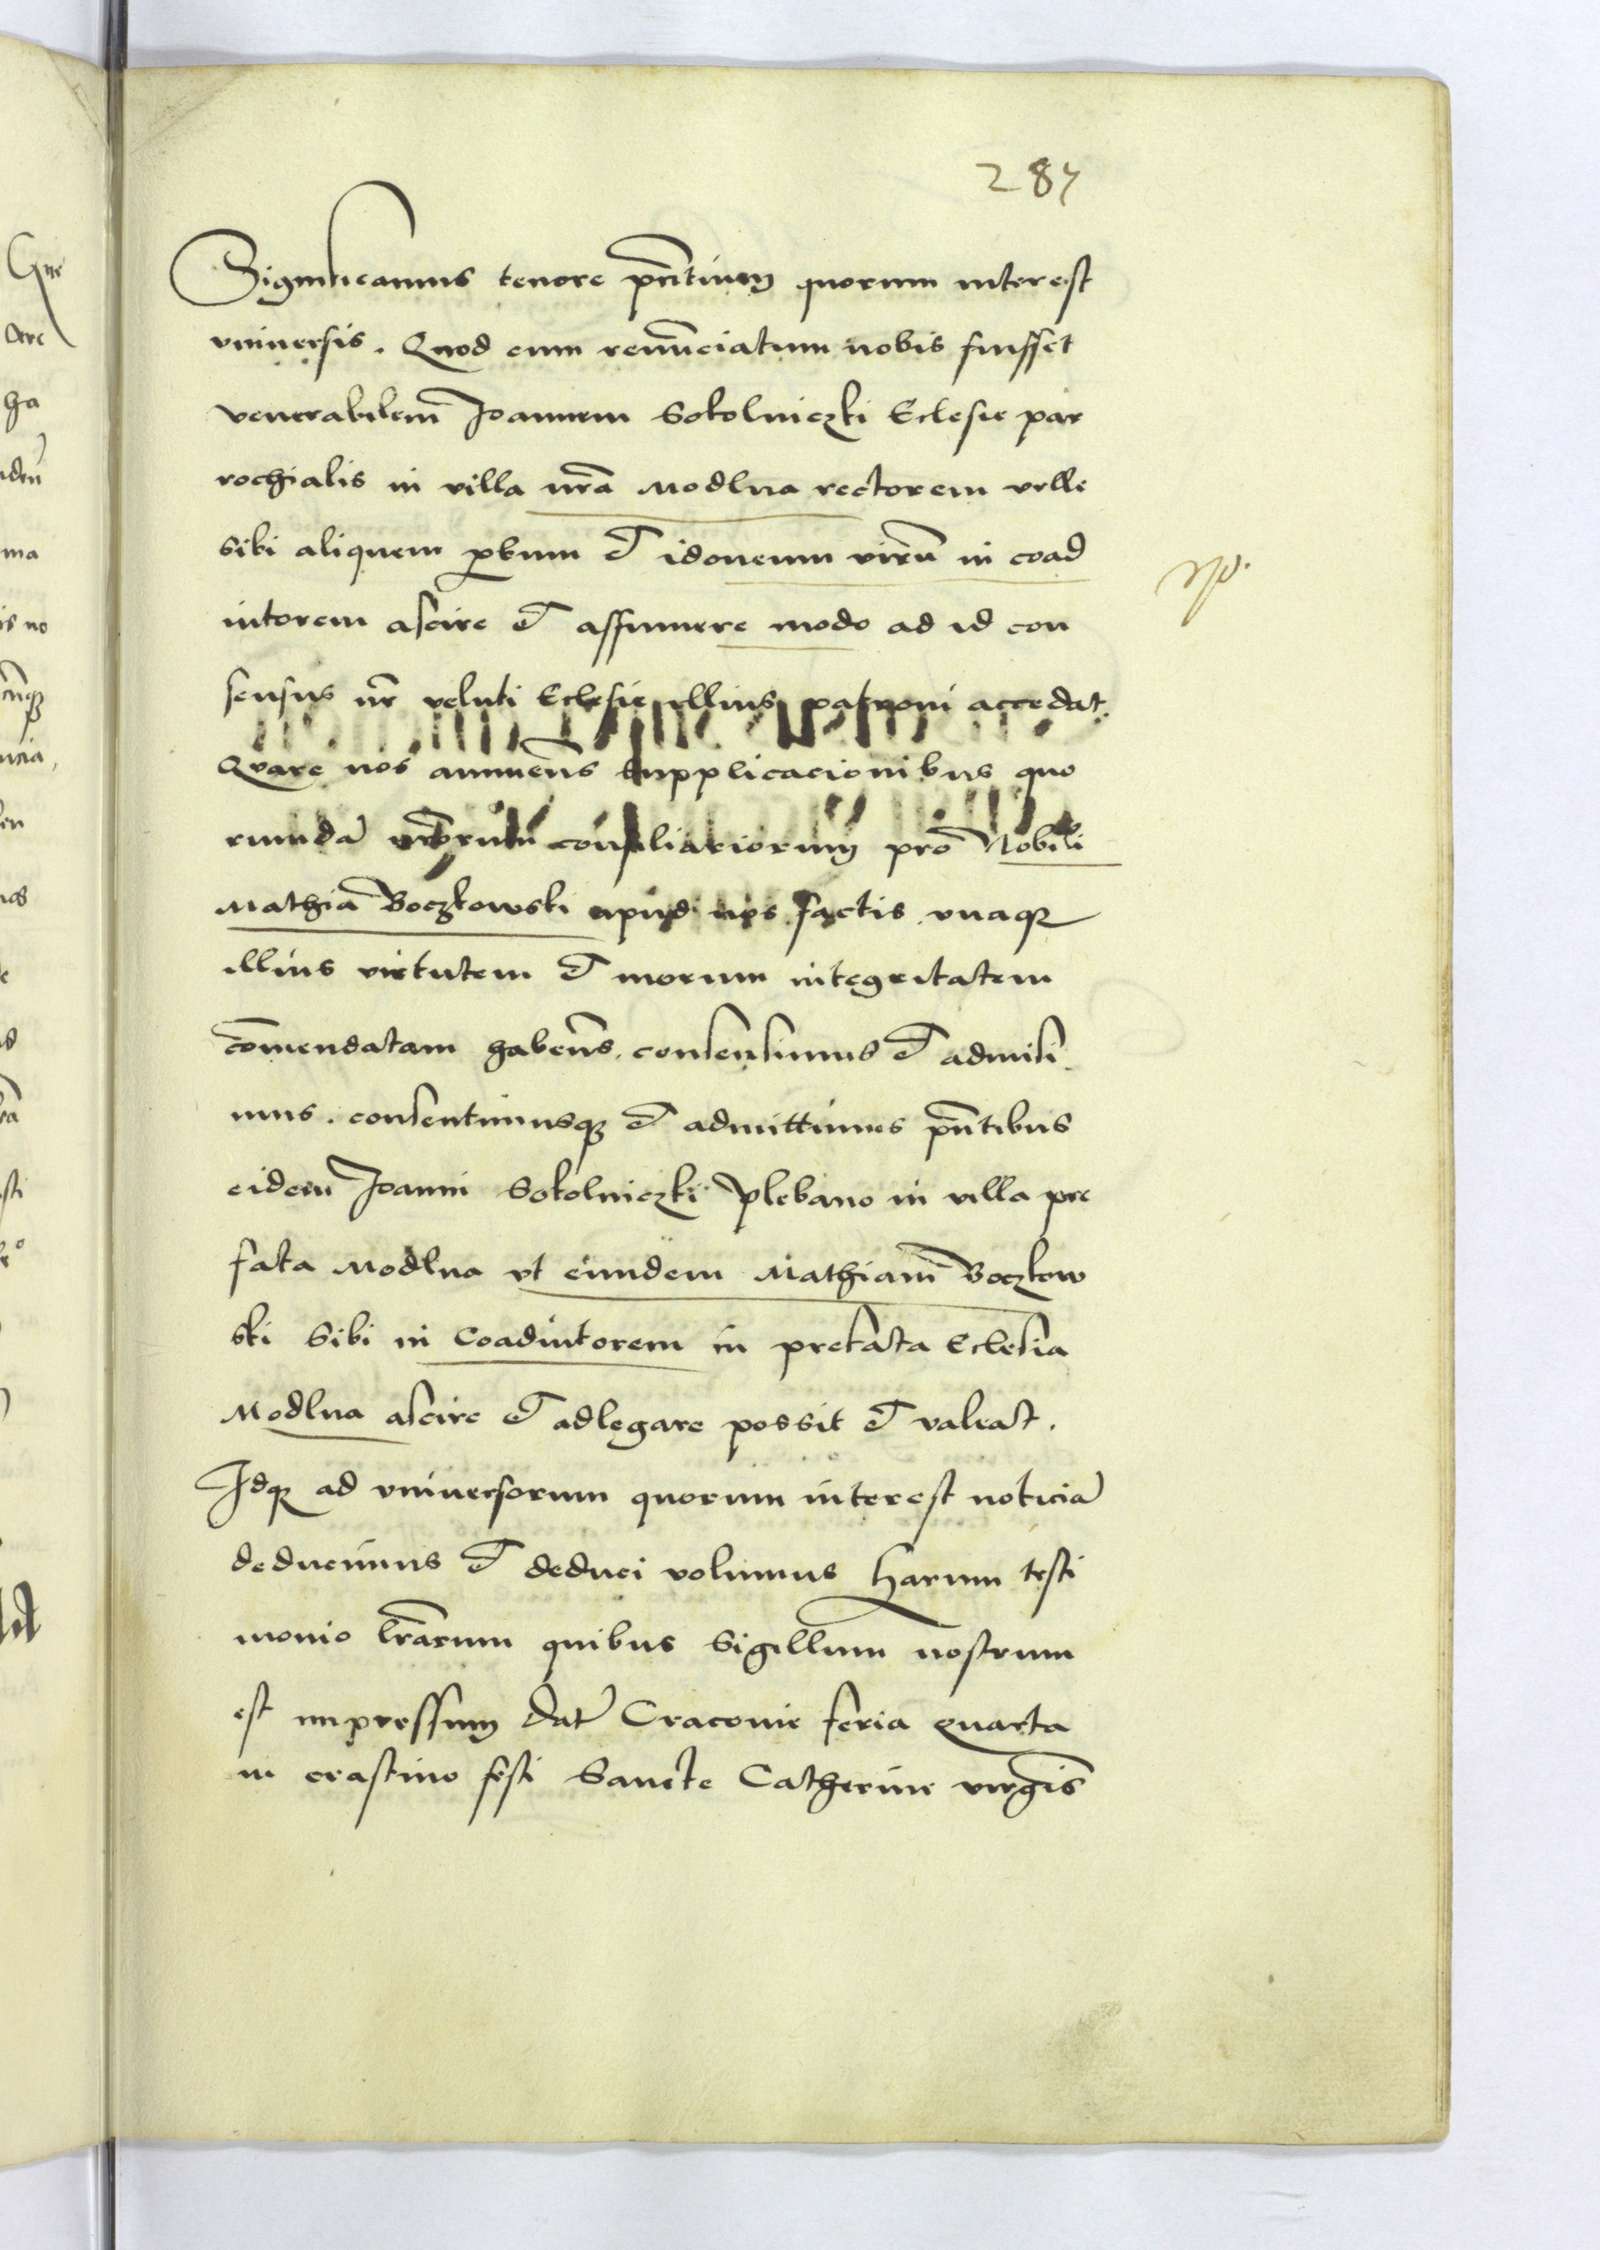 287
Significamus tenore pn̄tium quorum interest
vniuersis. Quod cum renunciatum nobis fuisset
venerabilem Joannem Sokolniczki Eclesie par
rochialis in villa nr̄a Modlna rectorem velle
sibi aliquem probum et idoneum virū in coad
iutorem ascire et assumere modo ad id con
sensus nr̄ veluti Eclesie illius patroni accedat.
Quare nos annuen̄s supplicacionibus quo
rumdā nr̄orum consiliariorum pro Nobili
Mathia Boczkowski apud nos factis vnaq3
illius virtutem et morum integritatem
com̄endatam haben̄s. consensimus et admisi
mus. consentimusq3 et admittimus pn̄tibus
eidem Joanni Sokolniczki plebano in villa pre
fata Modlna vt eundem Mathiam Boczkow
ski sibi in Coadiutorem in prefata Eclesia
Modlna ascire et adlegare possit et valeat.
Idq3 ad vniuersorum quorum interest noticiā
deducimus et deduci volumus harum testi
monio lr̄arum quibus Sigillum nostrum
est impressum Dat̄ Cracovie feria quarta
in crastino festi Sancte Catherine virgīs